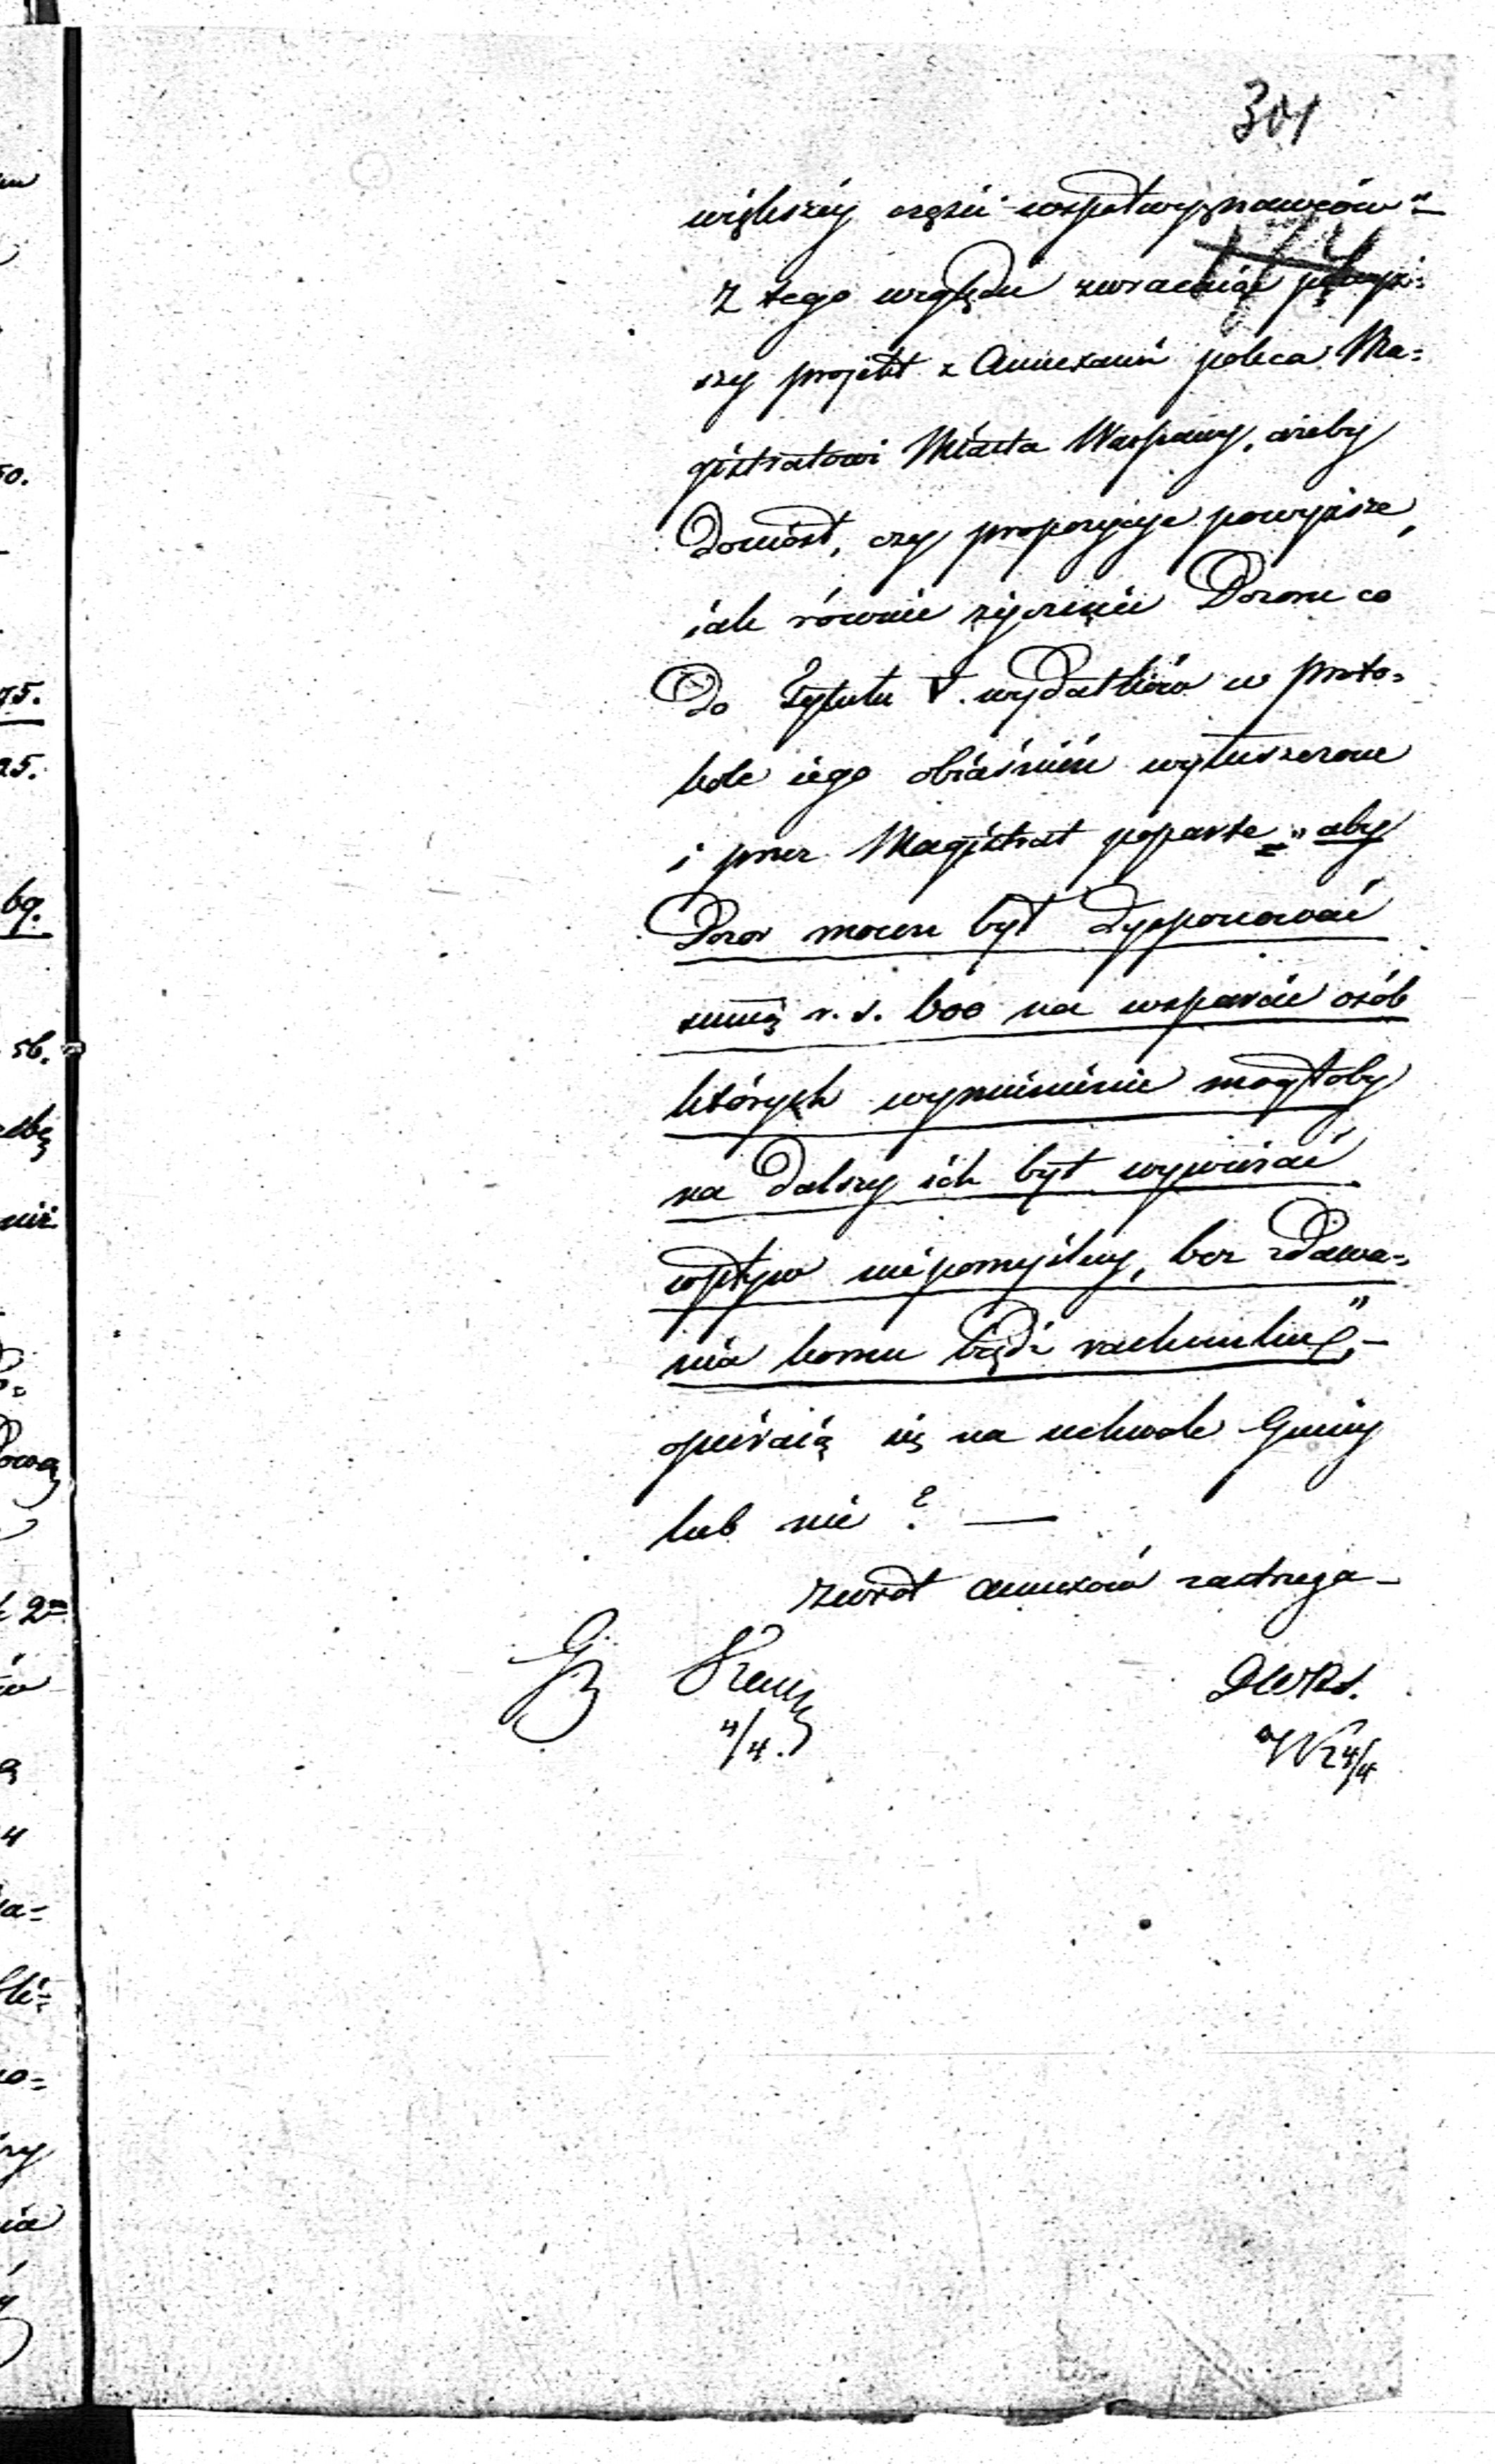 301
większéy części współwyznawców"–
Z tego względu zwracaiąc
szy projekt z Annexami poleca Ma=
gistratowi Miasta Warszawy, ażeby
doniósł, czy propozycye powyższe,
iak równie życzenie Dozoru co
do Tytułu V. wydatków w proto=
kole iego obiaśnień wyłuszczone
i przez Magistrat poparte = „aby
Dozor mocen był dysponować
summą r. s. 600 na wsparcie osób
których wymienienie mogłoby
na dalszy ich byt wywierać
wpływ niepomyślny, bez zdawa=
nia komu bądź rachunku",–
opieraią się na uchwale Gminy
lub nie? —
Zwrot annexów zastrzega–
4/4.
4/4
50.
75.
25.
69.
56.
nie
4